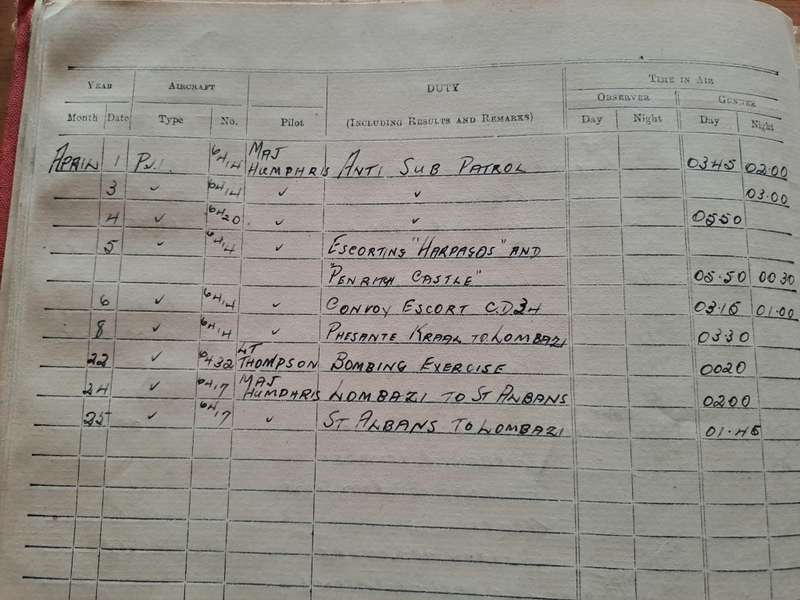 YEAR AIRCRAFT DUTY TIME IN AIR
OBSERVER GUNNER
Month Date Type No. Pilot (INCLUDING RESULTS AND REMARKS) Day Night Day Night
APRIL 1 P.V.1. 6414 MAJ HUMPHRIS ANTI SUB PATROL 03.45 02.00
3 ✓ 6414 ✓ ✓ 03.00
4 ✓ 6420 ✓ ✓ 05.50
5 ✓ 6414 ✓ ESCORTING "HARPAGOS" AND
"PENRITH CASTLE" 05.50 00.30
6 ✓ 6414 ✓ CONVOY ESCORT C.D.34 03.15 01.00
8 ✓ 6414 ✓ PHESANTE KRAAL TO LOMBAZI 03.30
22 ✓ 6432 LT THOMPSON BOMBING EXERCISE 00.20
24 ✓ 6417 MAJ HUMPHRIS LOMBAZI TO ST ALBANS 02.00
25 ✓ 6417 ✓ ST ALBANS TO LOMBAZI 01.45